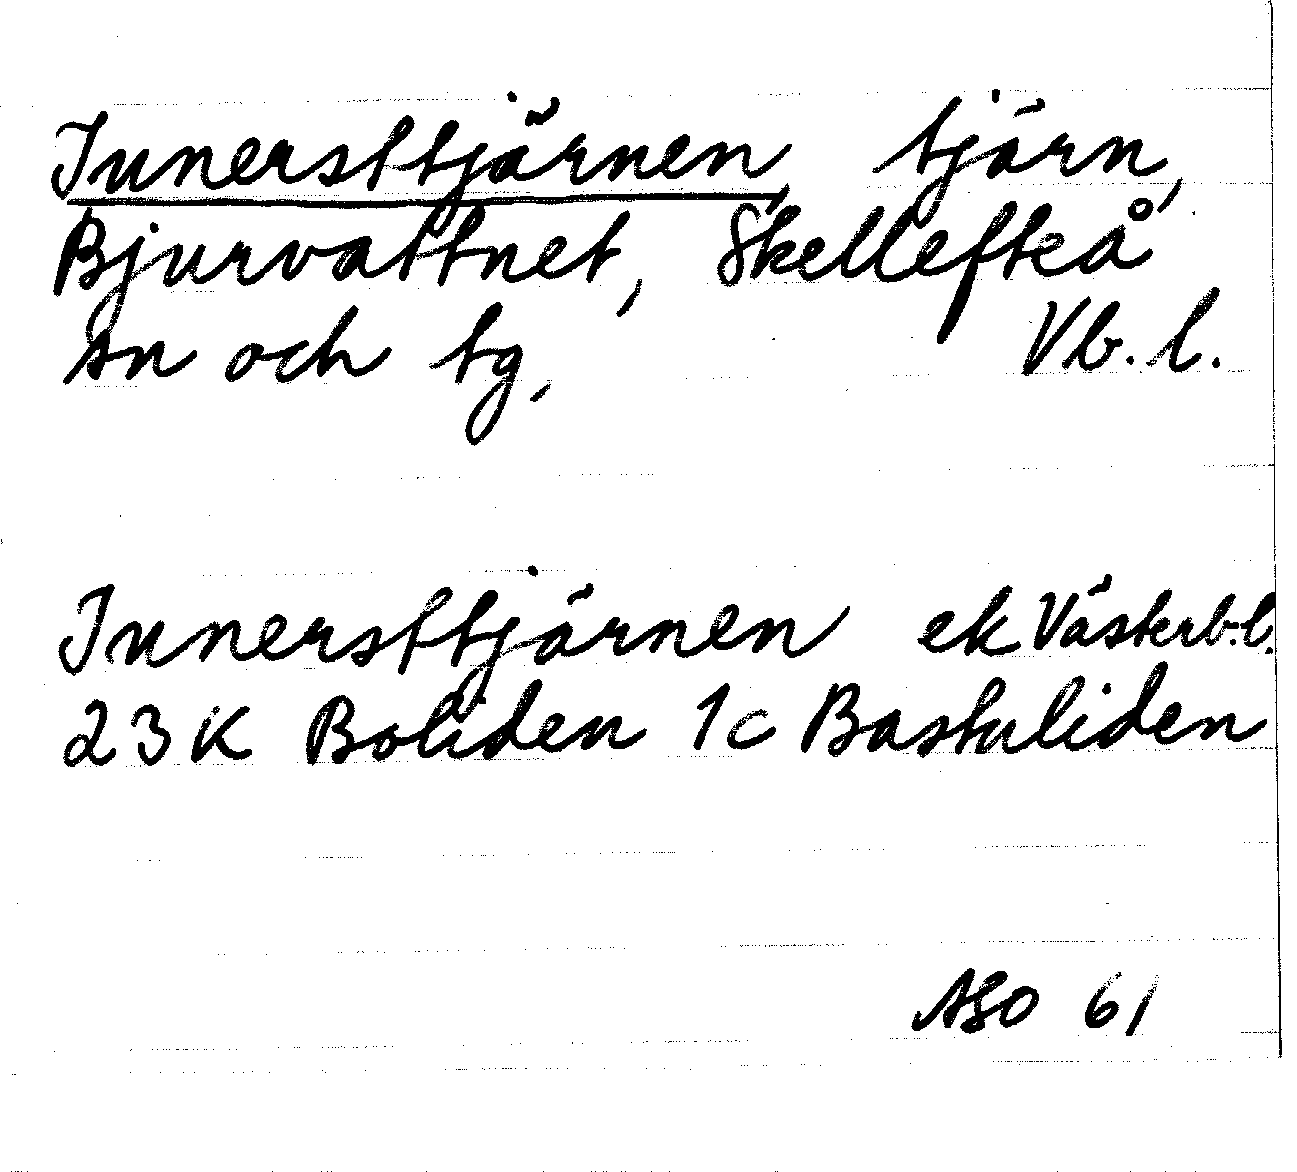 Innersttjärnen, tjärn,
Bjurvattnet, Skellefteå
sn och tg, Vb. l.
Innersttjärnen ek Västerb. l.
23 K Boliden 1c Bastuliden
ASO 61